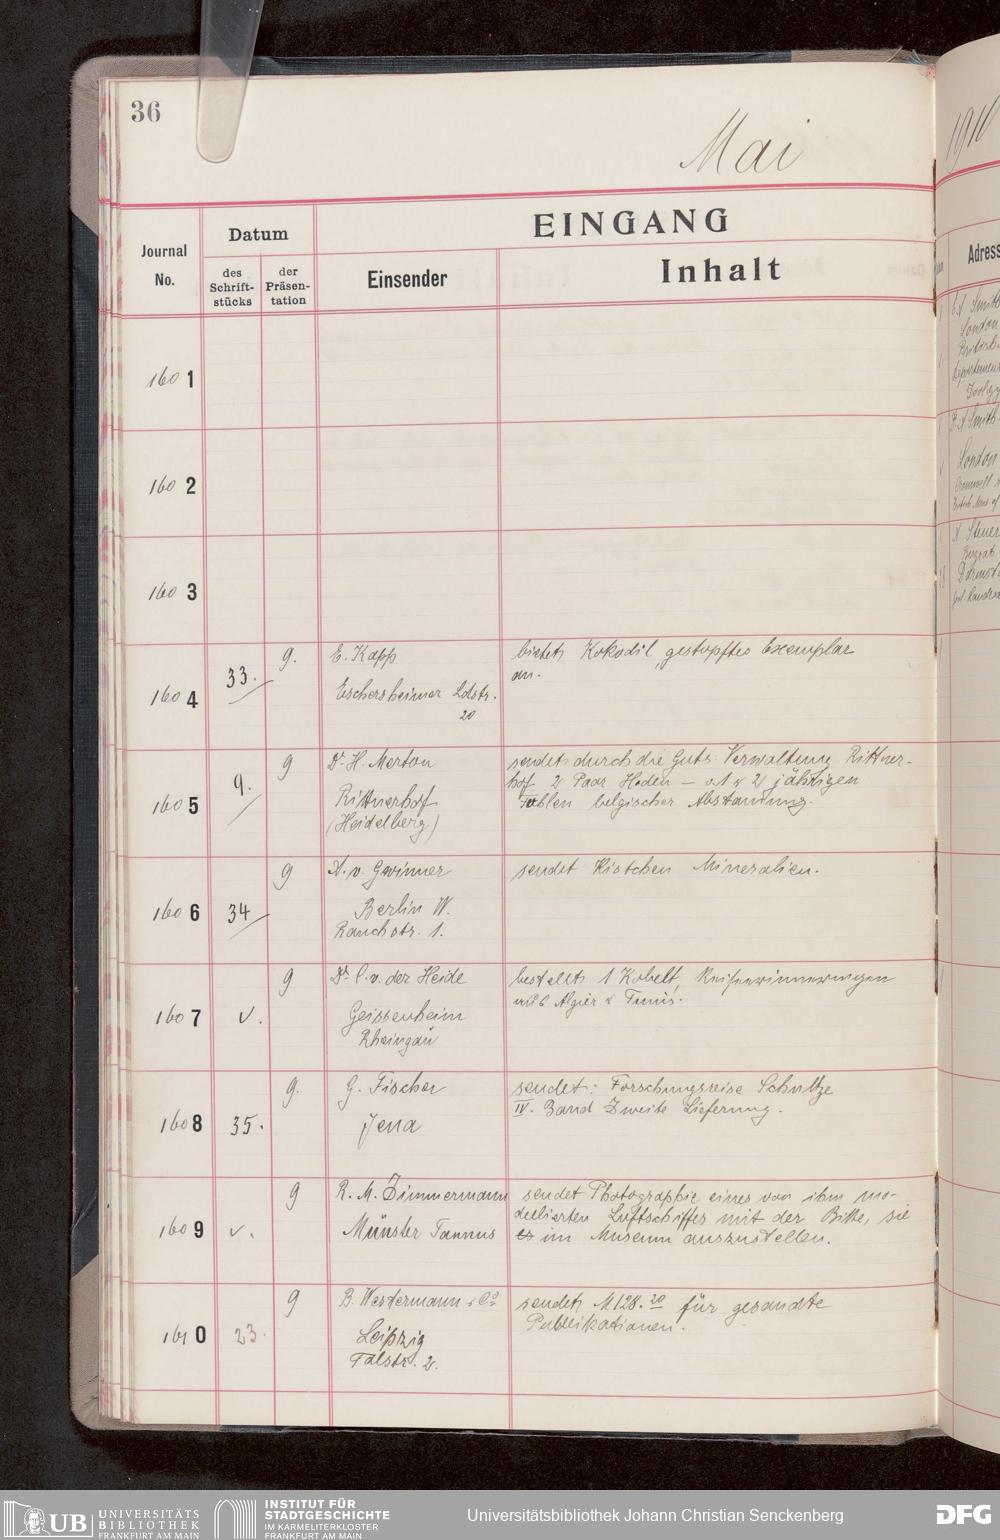 36
Mai
1910
EINGANG
Journal
No.
Datum
des
Schrift-
stücks
der
Präsen-
tation
Einsender
Inhalt
Adress
1601
1602
1603
1604
33.
9.
E. Kapp
Eschersheimer Ldstr.
20
bietet Kokodil, gestopftes Exemplar
an.
1605
9.
9
Dr. H. Merton
Rittnerhof
(Heidelberg)
sendet durch die Guts-Verwaltung Rittner-
hof 2 Paar Hoden – v. 1 & 2 jährigen
Fohlen belgischer Abstammung.
1606
34
9
A. v. Gwinner
Berlin W.
Rauchstr. 1.
sendet Kistchen Mineralien.
1607
v.
9
Dr. C. v. der Heide
Geisenheim
Rheingau
bestellt 1 Kobelt, Reiseerinnerungen
aus Algier & Tunis.
1608
35.
9.
G. Fischer
Jena
sendet: Forschungsreise Schultze
IV. Band Zweite Lieferung.
1609
v.
9
R. M. Zimmermann
Münster Taunus
sendet Photographie eines von ihm mo-
dellierten Luftschiffes mit der Bitte, sie
es im Museum auszustellen.
1610
23.
9
B. Westermann & Co
Leipzig
Talstr. 2.
sendet M 128.20 für gesandte
Publikationen.
London
London
UB UNIVERSITÄTS
BIBLIOTHEK
FRANKFURT AM MAIN
INSTITUT FÜR
STADTGESCHICHTE
IM KARMELITERKLOSTER
FRANKFURT AM MAIN
Universitätsbibliothek Johann Christian Senckenberg
DFG